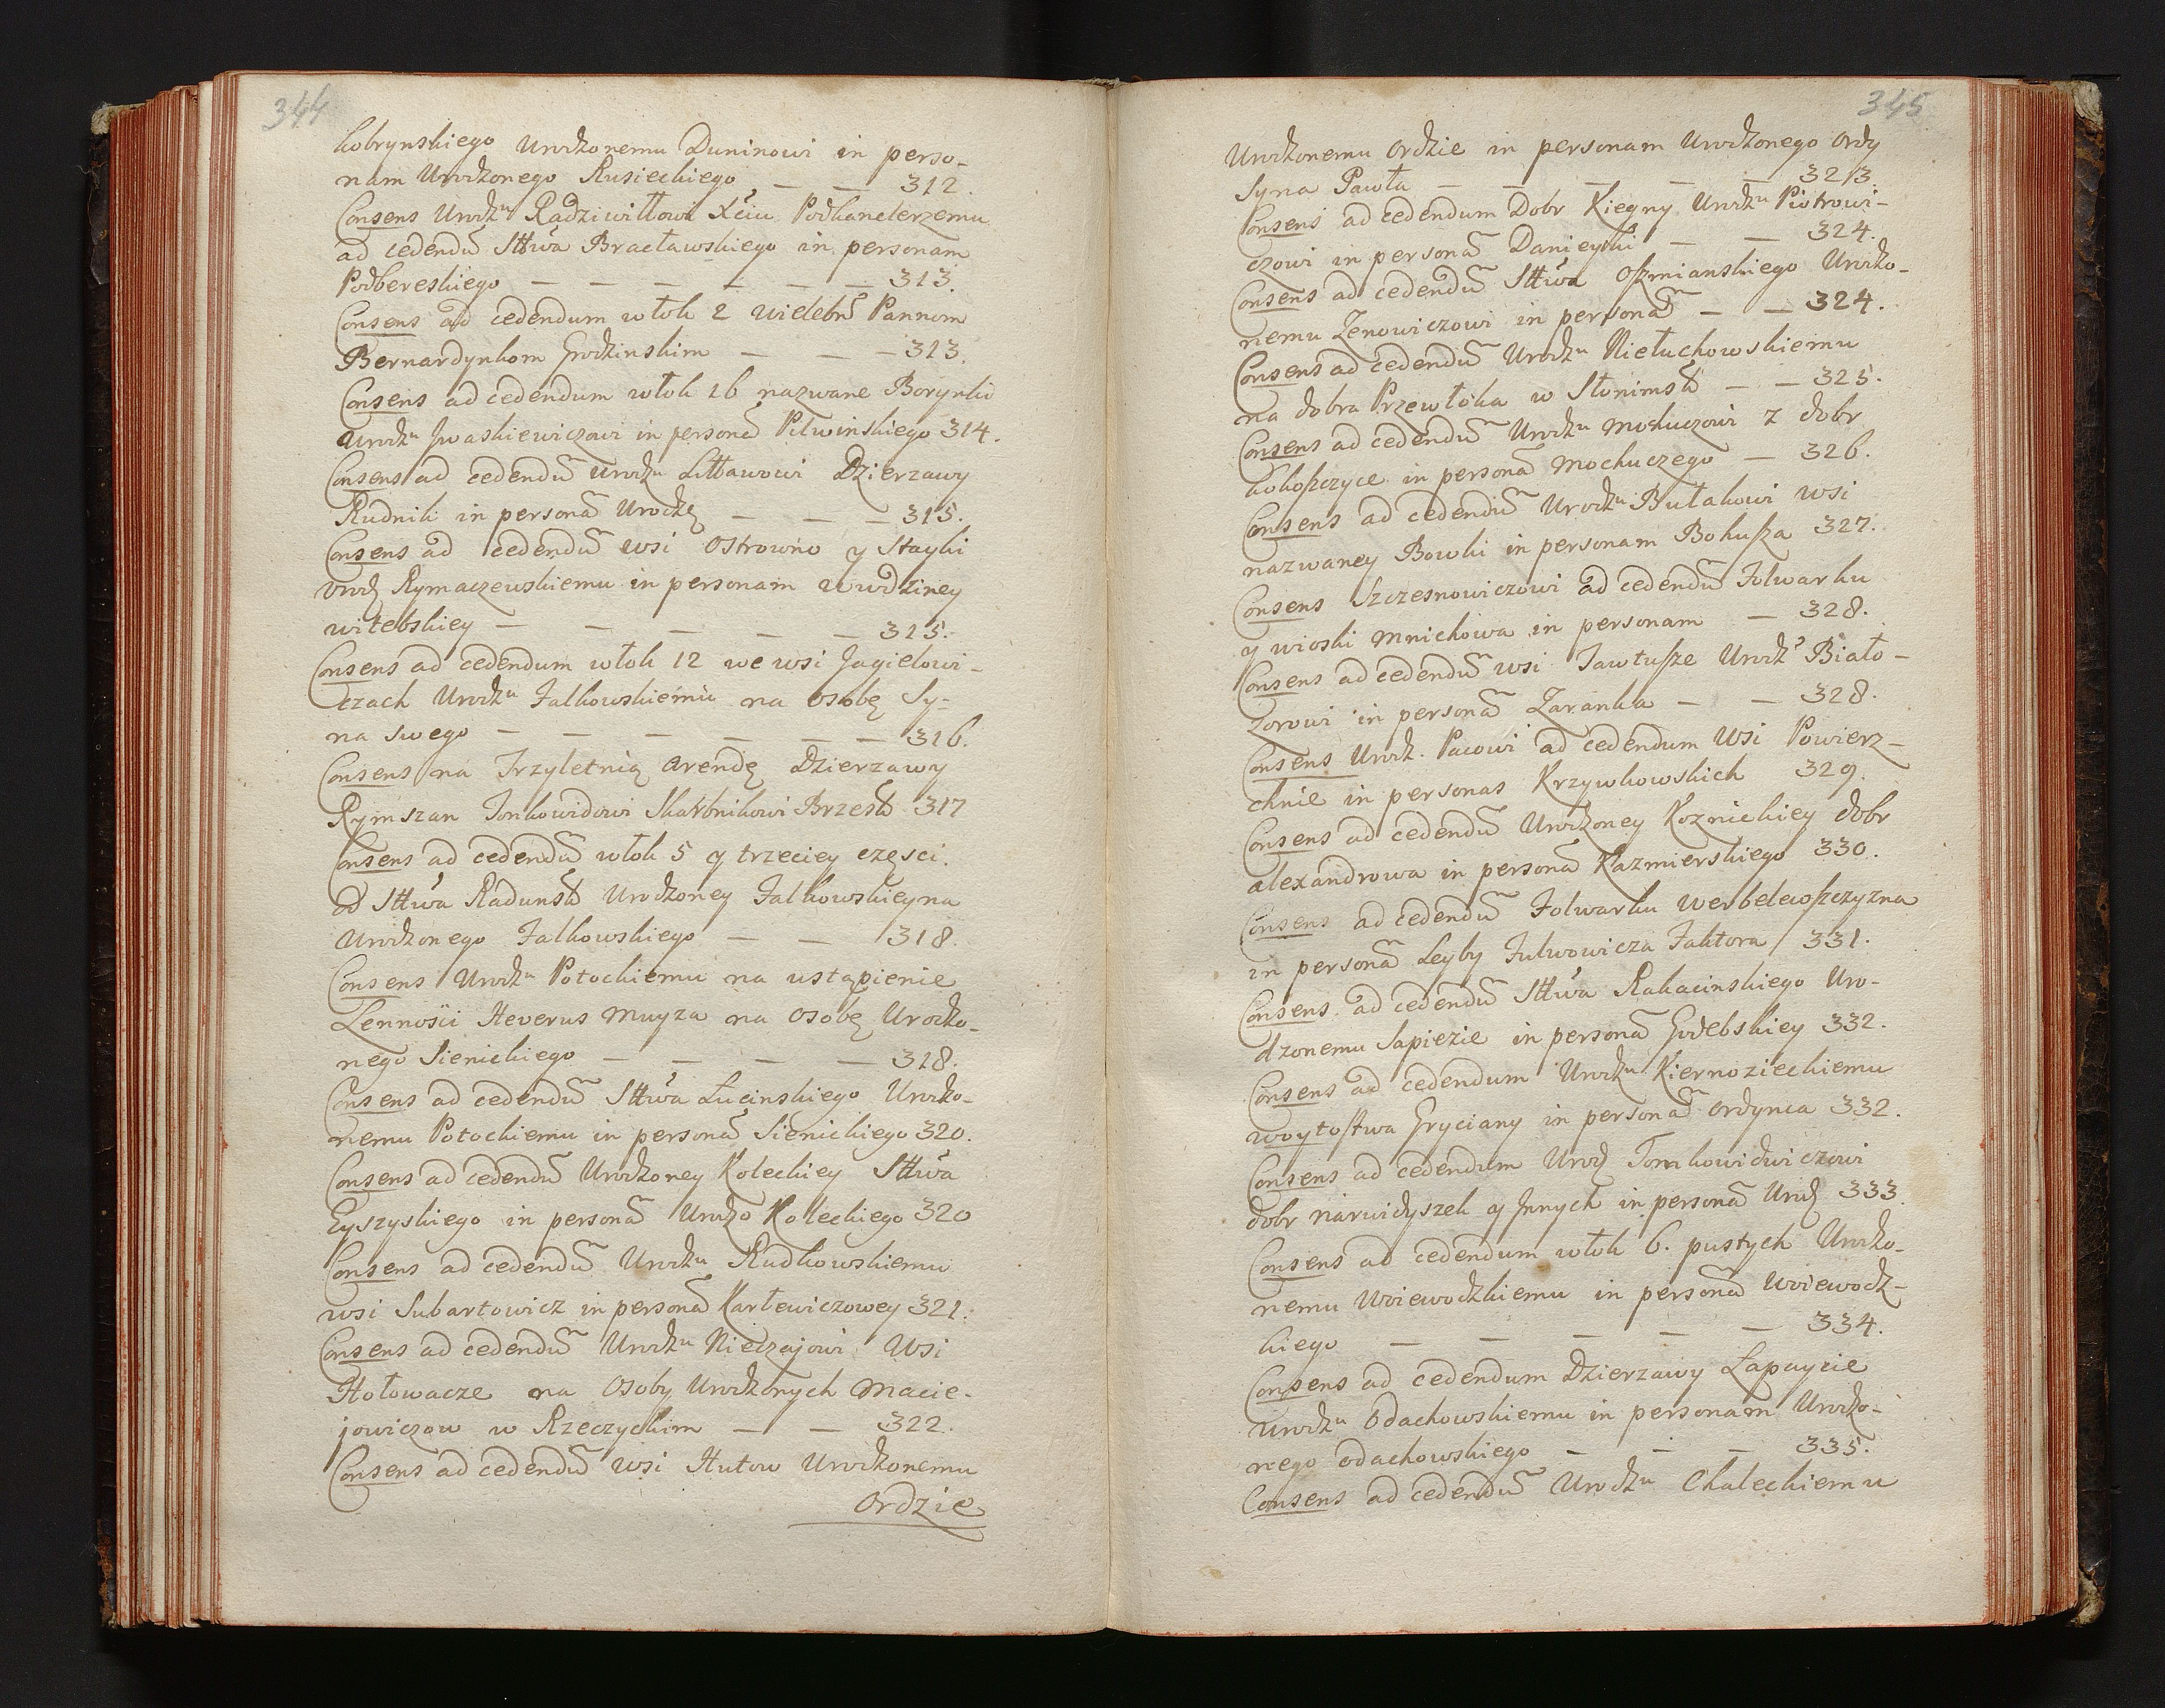 344
kobrynskiego Urodzonemu Duninowi in perso-
nam Urodzonego Rusieckiego — — 312.
Consens Urodzu Radziwiłłowi Xciu Podkanclerzemu
ad cedendū Sttwa Bracławskiego in personam
Podbereskiego — — — — — — 313.
Consens ad cedendum włok 2 wieleb Pannom
Bernardynkom Grodzinskim — — — 313.
Consens ad cedendum włok 16 nazwane Borynki
Urodzu Jwaskiewiczowi in personā Pilwinskiego 314.
Consens ad cedendū Urodzu Littawowi Dzierzawy
Rudnik in personā Urodzę — — — 315.
Consens ad cedendū wsi Ostrowno y Stayki
Urodz Rymaczewskiemu in personam wwdziney
witebskiey — — — — — 315.
Consens ad cedendum włok 12 we wsi Jagielowi-
czach Urodzu Falkowskiemu na osobę Sy-
na swego — — — — — — 316.
Consens na Trzyletnią Arendę Dzierzawy
Rymszan Jonkowidowi Skarbnikowi Brzesk 317
Consens ad cedendū włok 5 y trzeciey częsci.
od Sttwa Radunsk Urodzoney Falkowskiey na
Urodzonego Falkowskiego — — 318.
Consens Urodzu Potockiemu na ustąpienie
Lennosci Heverus Muyza na Osobę Urodzo-
nego Sienickiego — — — — 318.
Consens ad cedendū Sttwa Lucinskiego Urodzo-
nemu Potockiemu in personā Sienickiego 320.
Consens ad cedendū Urodzoney Koleckiey Sttwa
Eyszyskiego in personā Urodzo Koleckiego 320
Consens ad cedendū Urodzu Rudkowskiemu
wsi Subartowicz in personā Karlewiczowey 321.
Consens ad cedendū Urodzu Nieczajowi Wsi
Hołowacze na Osoby Urodzonych Macie-
jowiczow w Rzeczyckim — — 322.
Consens ad cedendū wsi Hutow Urodzonemu
Ordzie
345
Urodzonemu Ordzie in personam Urodzonego Ordy
Syna Pawła — — — — — 323.
Consens ad cedendum Dobr Kiegny Urodzu Piotrowi-
czowi in personā Danieyki — — 324.
Consens ad cedendū Sttwa Oszmianskiego Urodzo-
nemu Zenowiczowi in personā — — 324.
Consens ad cedendū Urodzu Nietuchowskiemu
na dobra Przewłoka w Słonimsk — — 325.
Consens ad cedendū Urodzu Mokuczowi z dobr
kokoszczyce in personā Mochuczego — 326.
Consens ad cedendū Urodzu Bułakowi wsi
nazwaney Bowki in personam Bohusza 327.
Consens Szczesnowiczowi ad cedendū Folwarku
y wioski Mnichowa in personam — 328.
Consens ad cedendū wsi Jawtusze Urodz Biało-
zorowi in personā Zaranka — — 328.
Consens Urodz. Pacowi ad cedendum Wsi Powierz-
chnie in personas Krzywkowskich 329.
Consens ad cedendū Urodzoney Koznickiey dobr
alexandrowa in personā Kazmierskiego 330.
Consens ad cedendū Folwarku Werbelewszczyzna
in personā Leyby Julwowicza Faktora 331.
Consens ad cedendū Sttwa Rakacinskiego Uro-
dzonemu Sapiezie in personā Godebskiey 332.
Consens ad cedendum Urodzu Kiernozieckiemu
woytostwa Gryciany in personā Ordynca 332.
Consens ad cedendum Urodz Tomkowidwiczowi
dobr narwidyszek y Jnnych in personā Urodz 333.
Consens ad cedendum włok 6. pustych Urodzo-
nemu Woiewodzkiemu in personā Woiewodz-
kiego — — — — — 334.
Consens ad cedendum Dzierzawy Łapaycie
Urodzu Odachowskiemu in personam Urodzo-
nego Odachowskiego — — — 335.
Consens ad cedendū Urodzu Chaleckiemu